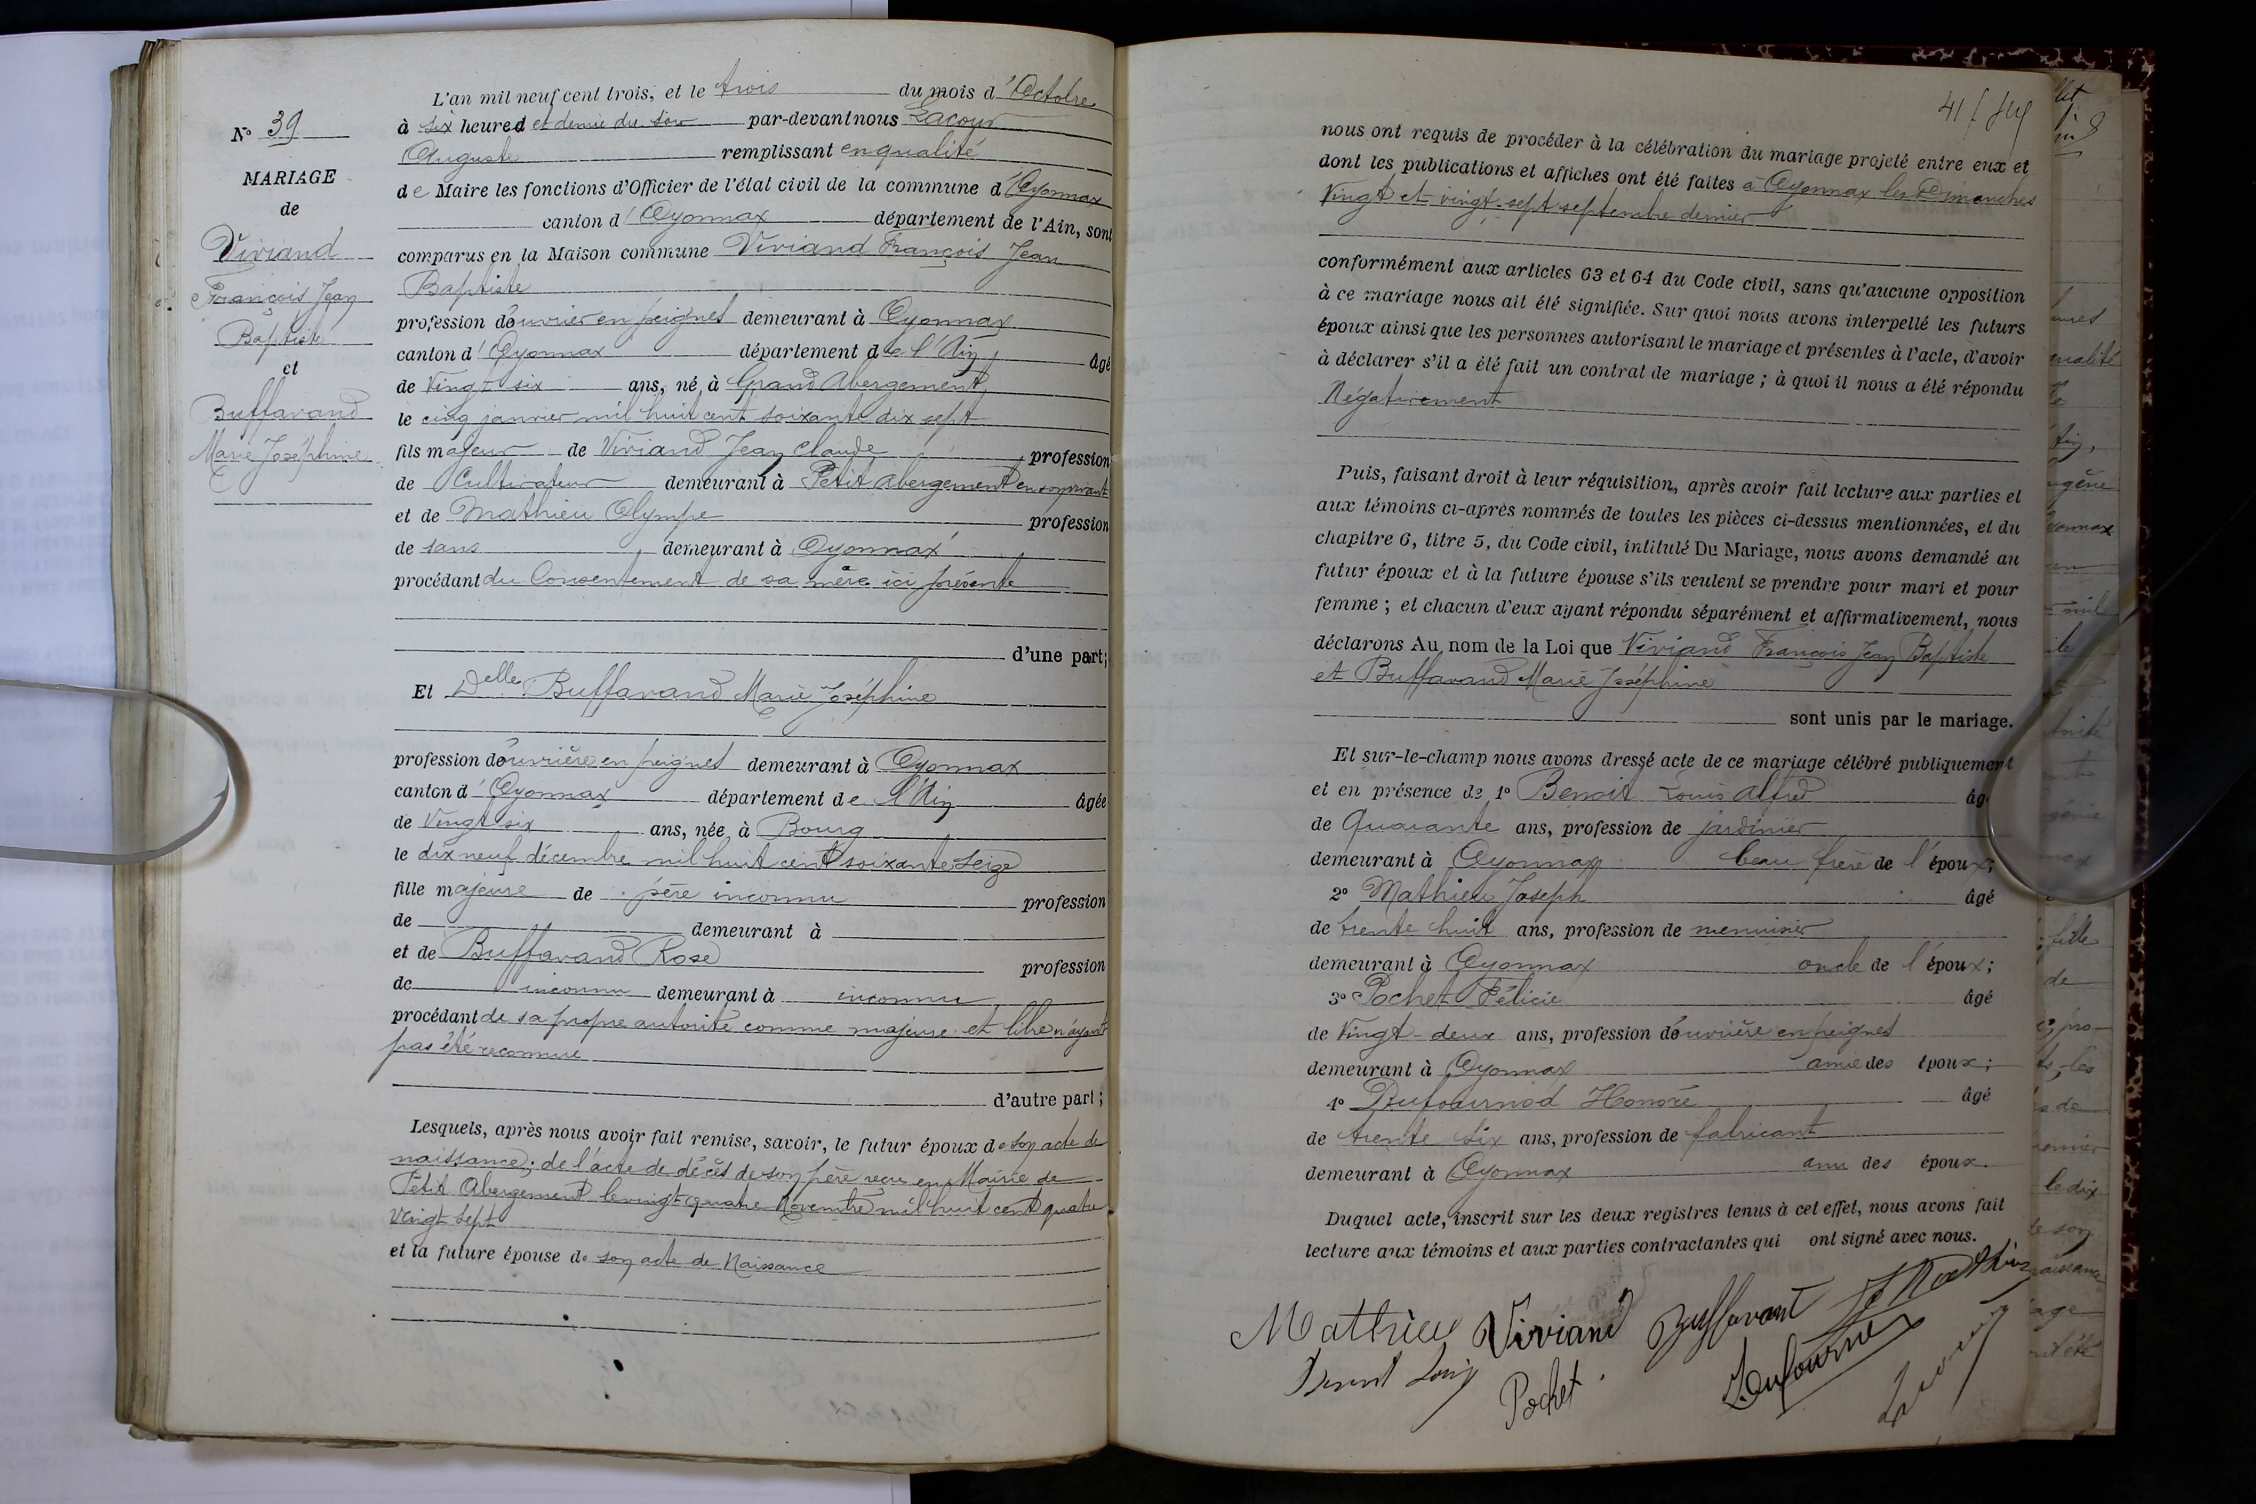 N° 39
MARIAGE
de
Viviand
François Jean
Baptiste
et
Buffavand
Marie Joséphine
L'an mil neuf cent trois, et le trois du mois d'Octobre
à six heures et demie du soir par-devant nous Lacour
Auguste remplissant en qualité
de Maire les fonctions d'Officier de l'état civil de la commune d'Oyonnax
canton d'Oyonnax département de l'Ain, sont
comparus en la Maison commune Viviand François Jean
Baptiste
profession d'ouvrier en peignes demeurant à Oyonnax
canton d'Oyonnax département de l'Ain âgé
de Vingt-six ans, né à Grand Abergement
le cinq janvier mil huit cent soixante dix sept
fils majeur de Viviand Jean Claude profession
de Cultivateur demeurant à Petit Abergement en son vivant
et de Mathieu Olympe profession
de sans demeurant à Oyonnax
procédant du Consentement de sa mère ici présente
d'une part;
Et Delle Buffavand Marie Joséphine
profession d'ouvrière en peignes demeurant à Oyonnax
canton d'Oyonnax département de l'Ain âgée
de Vingt six ans, née à Bourg
le dix neuf décembre mil huit cent soixante seize
fille majeure de père inconnu profession
de demeurant à
et de Buffavand Rose profession
de inconnu demeurant à inconnu
procédant de sa propre autorité comme majeure et libre n'ayant
pas été reconnue
d'autre part;
Lesquels, après nous avoir fait remise, savoir, le futur époux de son acte de
naissance; de l'acte de décès de son père reçu en Mairie de
Petit Abergement le vingt-quatre Novembre mil huit cent quatre
vingt sept
et la future épouse de son acte de Naissance
41
nous ont requis de procéder à la célébration du mariage projeté entre eux et
dont les publications et affiches ont été faites à Oyonnax les Dimanches
Vingt et vingt-sept septembre dernier
conformément aux articles 63 et 64 du Code civil, sans qu'aucune opposition
à ce mariage nous ait été signifiée. Sur quoi nous avons interpellé les futurs
époux ainsi que les personnes autorisant le mariage et présentes à l'acte, d'avoir
à déclarer s'il a été fait un contrat de mariage; à quoi il nous a été répondu
Négativement
Puis, faisant droit à leur réquisition, après avoir fait lecture aux parties et
aux témoins ci-après nommés de toutes les pièces ci-dessus mentionnées, et du
chapitre 6, titre 5, du Code civil, intitulé Du Mariage, nous avons demandé au
futur époux et à la future épouse s'ils veulent se prendre pour mari et pour
femme; et chacun d'eux ayant répondu séparément et affirmativement, nous
déclarons Au nom de la Loi que Viviand François Jean Baptiste
et Buffavand Marie Joséphine
sont unis par le mariage.
Et sur-le-champ nous avons dressé acte de ce mariage célébré publiquement
et en présence de 1° Benoit Louis Alfred âgé
de Quarante ans, profession de jardinier
demeurant à Oyonnax beau frère de l'époux;
2° Mathieu Joseph âgé
de trente huit ans, profession de menuisier
demeurant à Oyonnax oncle de l'époux;
3° Pochet Félicie âgé
de Vingt-deux ans, profession d'ouvrière en peignes
demeurant à Oyonnax amie des époux;
4° Dufournod Honoré âgé
de trente six ans, profession de fabricant
demeurant à Oyonnax ami des époux.
Duquel acte, inscrit sur les deux registres tenus à cet effet, nous avons fait
lecture aux témoins et aux parties contractantes qui ont signé avec nous.
Mathieu Viviand Buffavant
Pochet